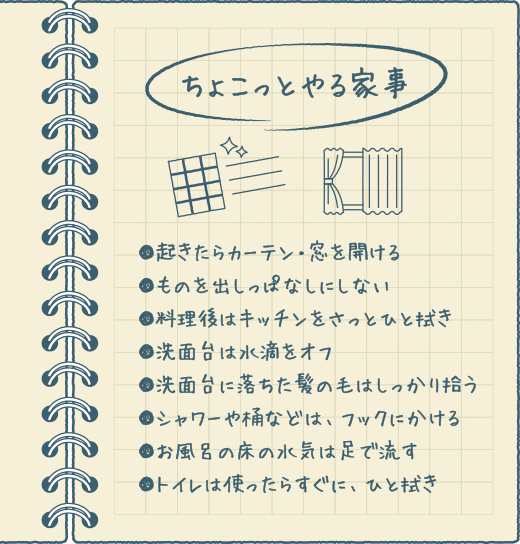 ちょこっとやる家事
●起きたらカーテン・窓を開ける
●ものを出しっぱなしにしない
●料理後はキッチンをさっとひと拭き
●洗面台は水滴をオフ
●洗面台に落ちた髪の毛はしっかり拾う
●シャワーや桶などは、フックにかける
●お風呂の床の水気は足で流す
●トイレは使ったらすぐに、ひと拭き